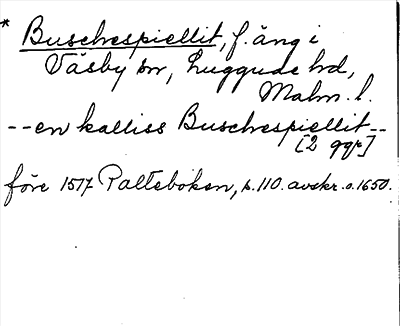 * Buschespiellit, f. äng i
Väsby sn, Luggude hd,
Malm. l.
-- en kalliss Buschespiellit --
[2 ggr]
före 1517 Palteboken, s. 110. avskr. o. 1650.